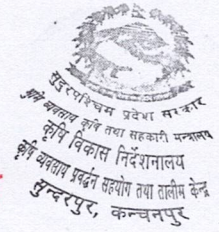 सुदूरपश्चिम प्रदेश सरकार
भूमि व्यवस्था कृषि तथा सहकारी मन्त्रालय
कृषि विकास निर्देशनालय
कृषि व्यवसाय प्रवर्द्धन सहयोग तथा तालीम केन्द्र
सुन्दरपुर, कन्चनपुर